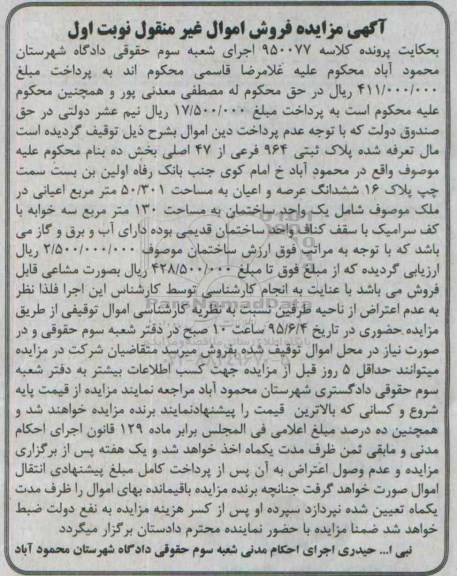 آگهی مزایده فروش اموال غیر منقول نوبت اول
بحکایت پرونده کلاسه ۹۵۰۰۷۷ اجرای شعبه سوم حقوقی دادگاه شهرستان
محمود آباد محکوم علیه غلامرضا قاسمی محکوم اند به پرداخت مبلغ
۴۱۱/۰۰۰/۰۰۰ ریال در حق محکوم له مصطفی معدنی پور و همچنین محکوم
علیه محکوم است به پرداخت مبلغ ۱۷/۵۰۰/۰۰۰ ریال نیم عشر دولتی در حق
صندوق دولت که با توجه عدم پرداخت دین اموال بشرح ذیل توقیف گردیده است
مال تعرفه شده پلاک ثبتی ۹۶۴ فرعی از ۴۷ اصلی بخش ده بنام محکوم علیه
موصوف واقع در محمود آباد خ امام کوی جنب بانک رفاه اولین بن بست سمت
چپ پلاک ۱۶ ششدانگ عرصه و اعیان به مساحت ۵۰/۳۰۱ متر مربع اعیانی در
ملک موصوف شامل یک واحد ساختمان به مساحت ۱۳۰ متر مربع سه خوابه با
کف سرامیک با سقف کناف واحد ساختمان قدیمی بوده دارای آب و برق و گاز می
باشد که با توجه به مراتب فوق ارزش ساختمان موصوف ۲/۵۰۰/۰۰۰/۰۰۰ ریال
ارزیابی گردیده که از مبلغ فوق تا مبلغ ۴۲۸/۵۰۰/۰۰۰ ریال بصورت مشاعی قابل
فروش می باشد با عنایت به انجام کارشناسی توسط کارشناس این اجرا فلذا نظر
به عدم اعتراض از ناحیه طرفین نسبت به نظریه کارشناسی اموال توقیفی از طریق
مزایده حضوری در تاریخ ۹۵/۶/۴ ساعت ۱۰ صبح در دفتر شعبه سوم حقوقی و در
صورت نیاز در محل اموال توقیف شده بفروش میرسد متقاضیان شرکت در مزایده
میتوانند حداقل ۵ روز قبل از مزایده جهت کسب اطلاعات بیشتر به دفتر شعبه
سوم حقوقی دادگستری شهرستان محمود آباد مراجعه نمایند مزایده از قیمت پایه
شروع و کسانی که بالاترین قیمت را پیشنهادنمایند برنده مزایده خواهند شد و
همچنین ده درصد مبلغ اعلامی فی المجلس برابر ماده ۱۲۹ قانون اجرای احکام
مدنی و مابقی ثمن ظرف مدت یکماه اخذ خواهد شد و یک هفته پس از برگزاری
مزایده و عدم وصول اعتراض به آن پس از پرداخت کامل مبلغ پیشنهادی انتقال
اموال صورت خواهد گرفت چنانچه برنده مزایده باقیمانده بهای اموال را ظرف مدت
یکماه تعیین شده نپردازد سپرده او پس از کسر هزینه مزایده به نفع دولت ضبط
خواهد شد ضمنا مزایده با حضور نماینده محترم دادستان برگزار میگردد
نبی ا... حیدری اجرای احکام مدنی شعبه سوم حقوقی دادگاه شهرستان محمود آباد